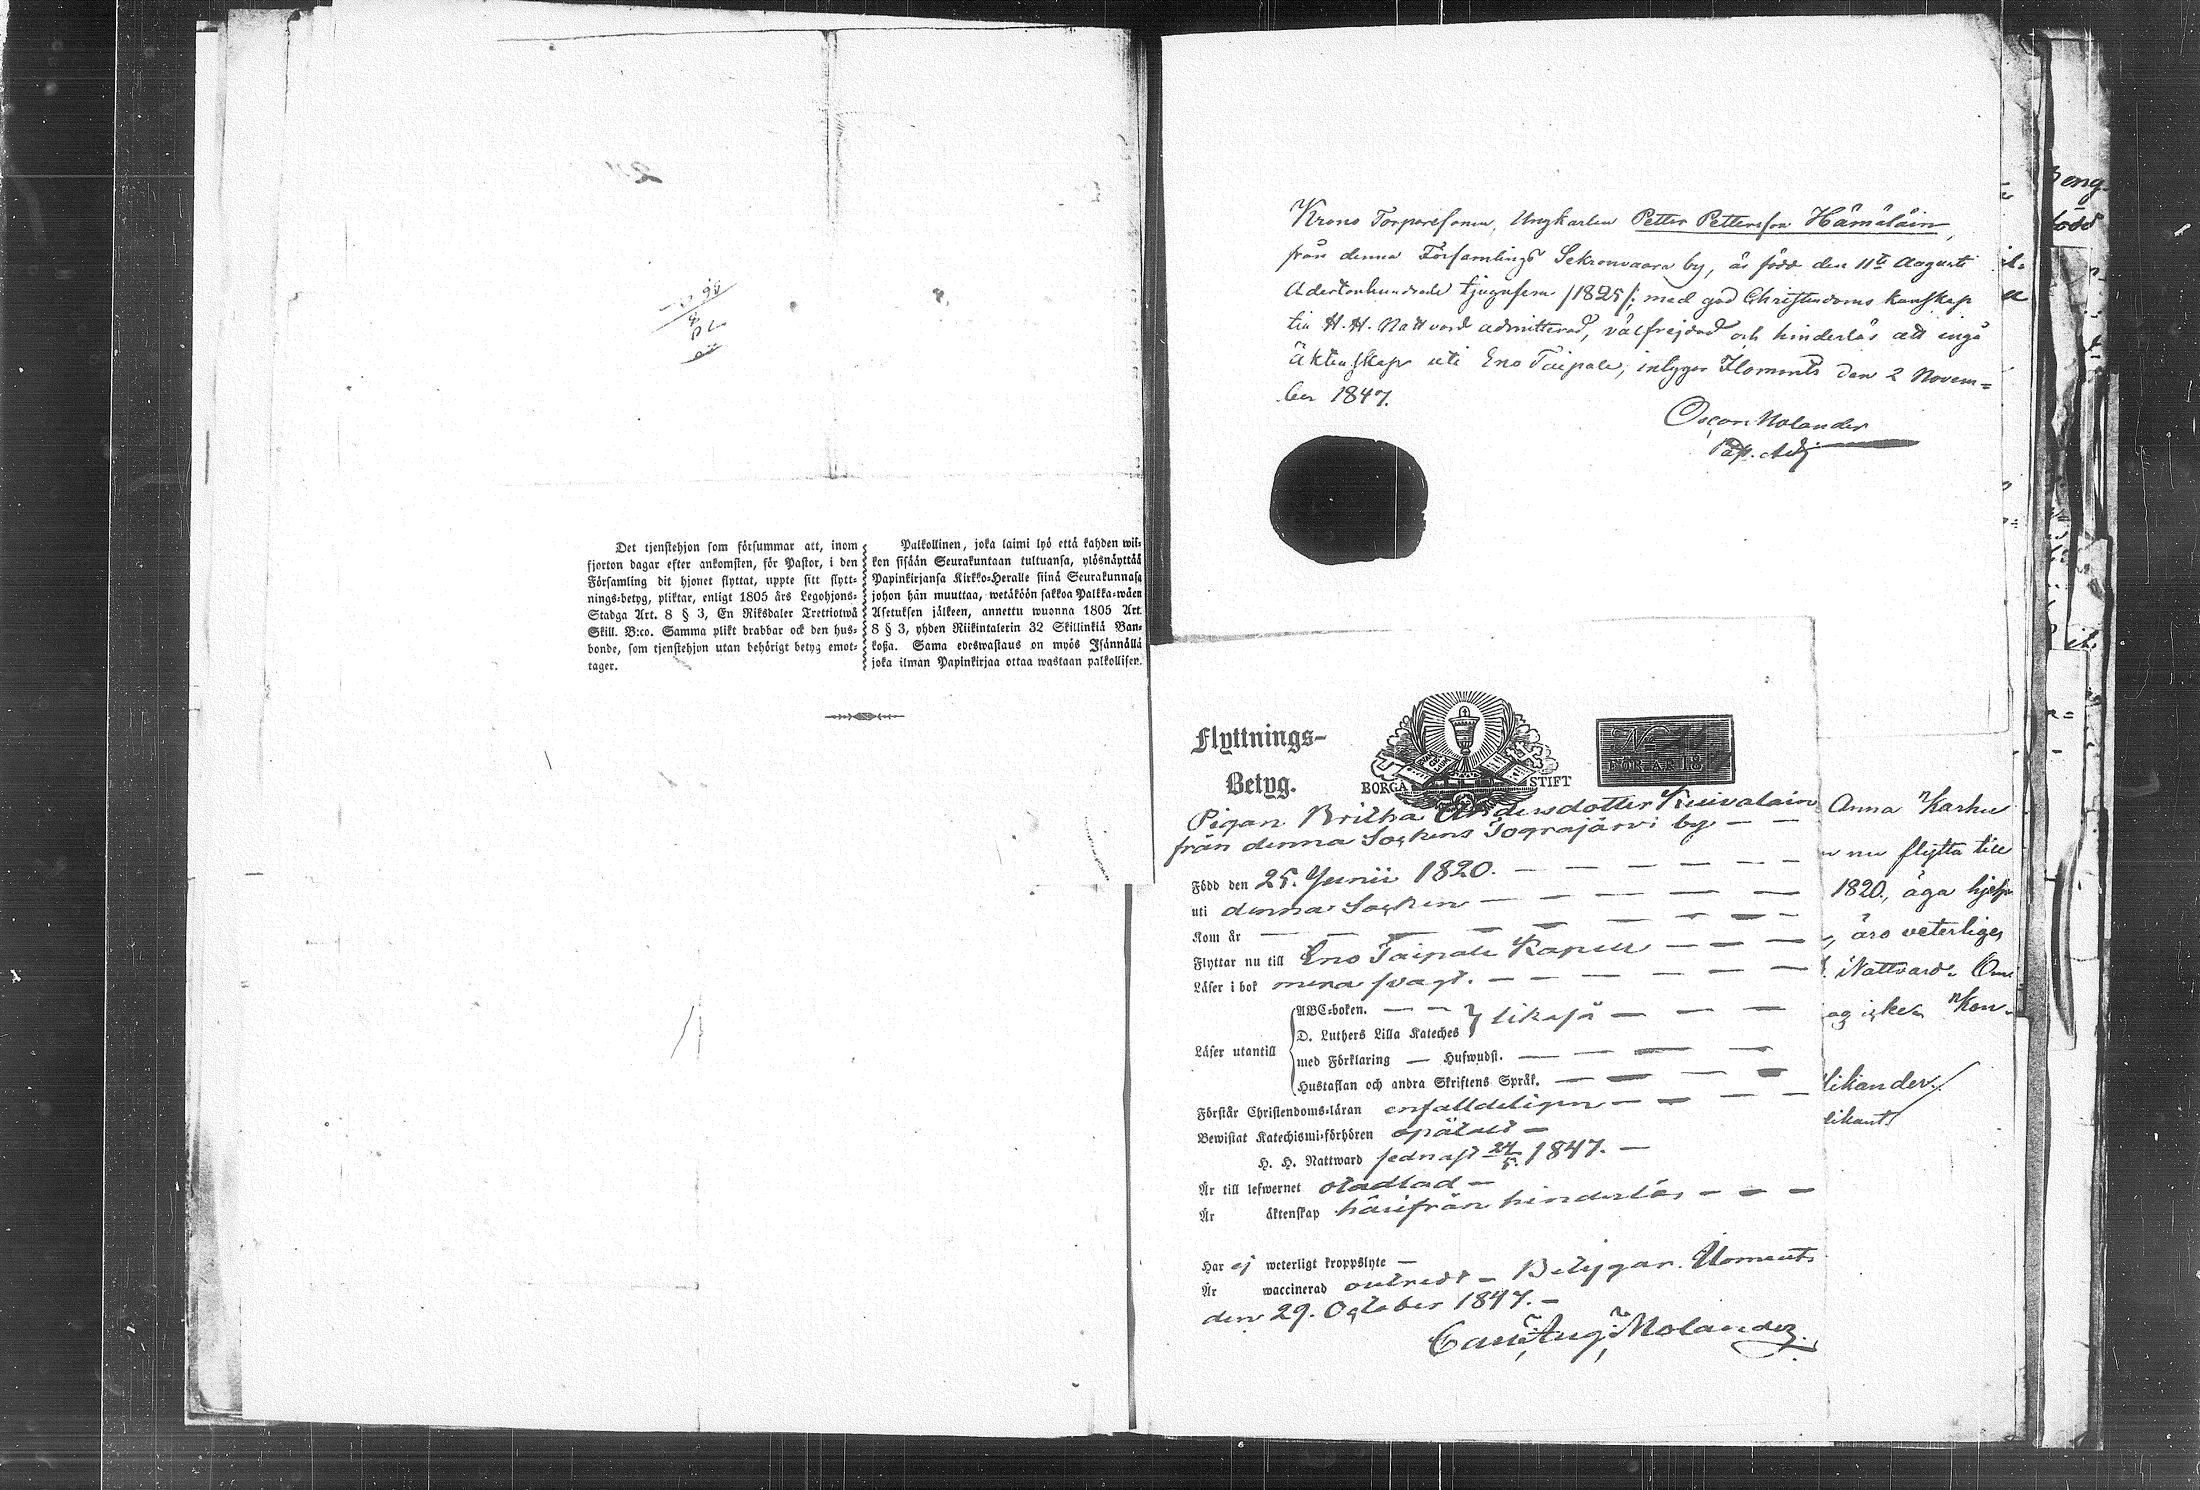 Det tjenstehjon som försummar att, inom
fjorton dagar efter ankomsten, för Pastor, i den
Församling dit hjonet flyttat, uppte sitt flytt-
nings-betyg, pliktar, enligt 1805 års Legohjons-
Stadga Art. 8 § 3, En Riksdaler Trettiotwå
Skill. B:co. Samma plikt drabbar ock den hus-
bonde, som tjenstehjon utan behörigt betyg emot-
tager.
Palkollinen, joka laimi lyö että kahden wii-
kon sisään Seurakuntaan tultuansa, ylösnäyttää
Papinkirjansa Kirkko-Heralle siinä Seurakunnasa
johon hän muuttaa, wetäköön sakkoa Palkka-wäen
Asetuksen jälkeen, annettu wuonna 1805 Art.
8 § 3, yhden Riikintalerin 32 Skillinkiä Ban-
koßa. Sama edeswastaus on myös Isännällä
joka ilman Papinkirjaa ottaa wastaan palkollisen.
Krono Torparesonen, Ungkarlen Petter Pettersson Hämäläin,
från denna Församlings Sekronvaara by, är född den 11te Augusti
Adertonhundrade tjugufem /1825/; med god Christendoms kunskap
till H. H. Nattvard admitterad, välfrejdad och hinderlös att ingå
äktenskap uti Eno Taipale, intygar Ilomants den 2 Novem=
ber 1847.
Oscar Molander
Past. Adj
Flyttnings-
Betyg.
BORGÅ STIFT
No
FÖR ÅR 18
Pigan Britha Andersdotter Kuivalain
från denna Sockens Sograjärvi by
Född den 25. Junii 1820.
uti denna Socken
Kom år
Flyttar nu till Eno Taipale Kapell
Läser i bok mera svagt.
Läser utantill
ABC-boken.
D. Luthers Lilla Kateches likaså
med Förklaring — Huswudst.
Hustaflan och andra Skriftens Språk.
Förstår Christendoms-läran enfalldeligen
Bewistat Katechismi-förhören
H. H. Nattward sednast 24/5 1847.
Är till lefwernet oladlad
Är äktenskap härifrån hinderlös
Har ej weterligt kroppslyte
Är waccinerad Betygar. Ilomants
den 29. October 1847.
Carl Aug: Molander.
Anna Karhu
nu flytta till
1820, äga hjelp
äro veterligen
Nattvard.
likander
likant